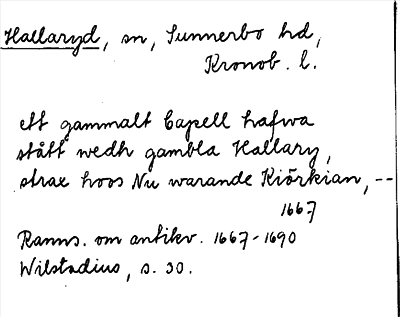 Hallaryd, sn, Sunnerbo hd,
Kronob. l.
ett gammalt Capell hafwa
stått wedh gambla Hallary,
strax hoos Nu warande Kiörkian, --
1667
Ranns. om antikv. 1667-1690
Wilstadius, s. 30.